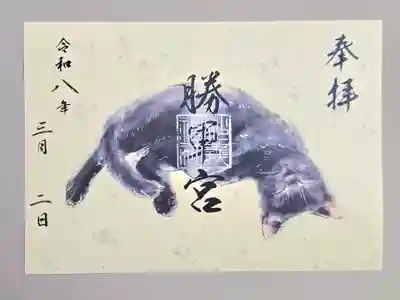 奉拝
勝軍宮
令和八年
三月 二日